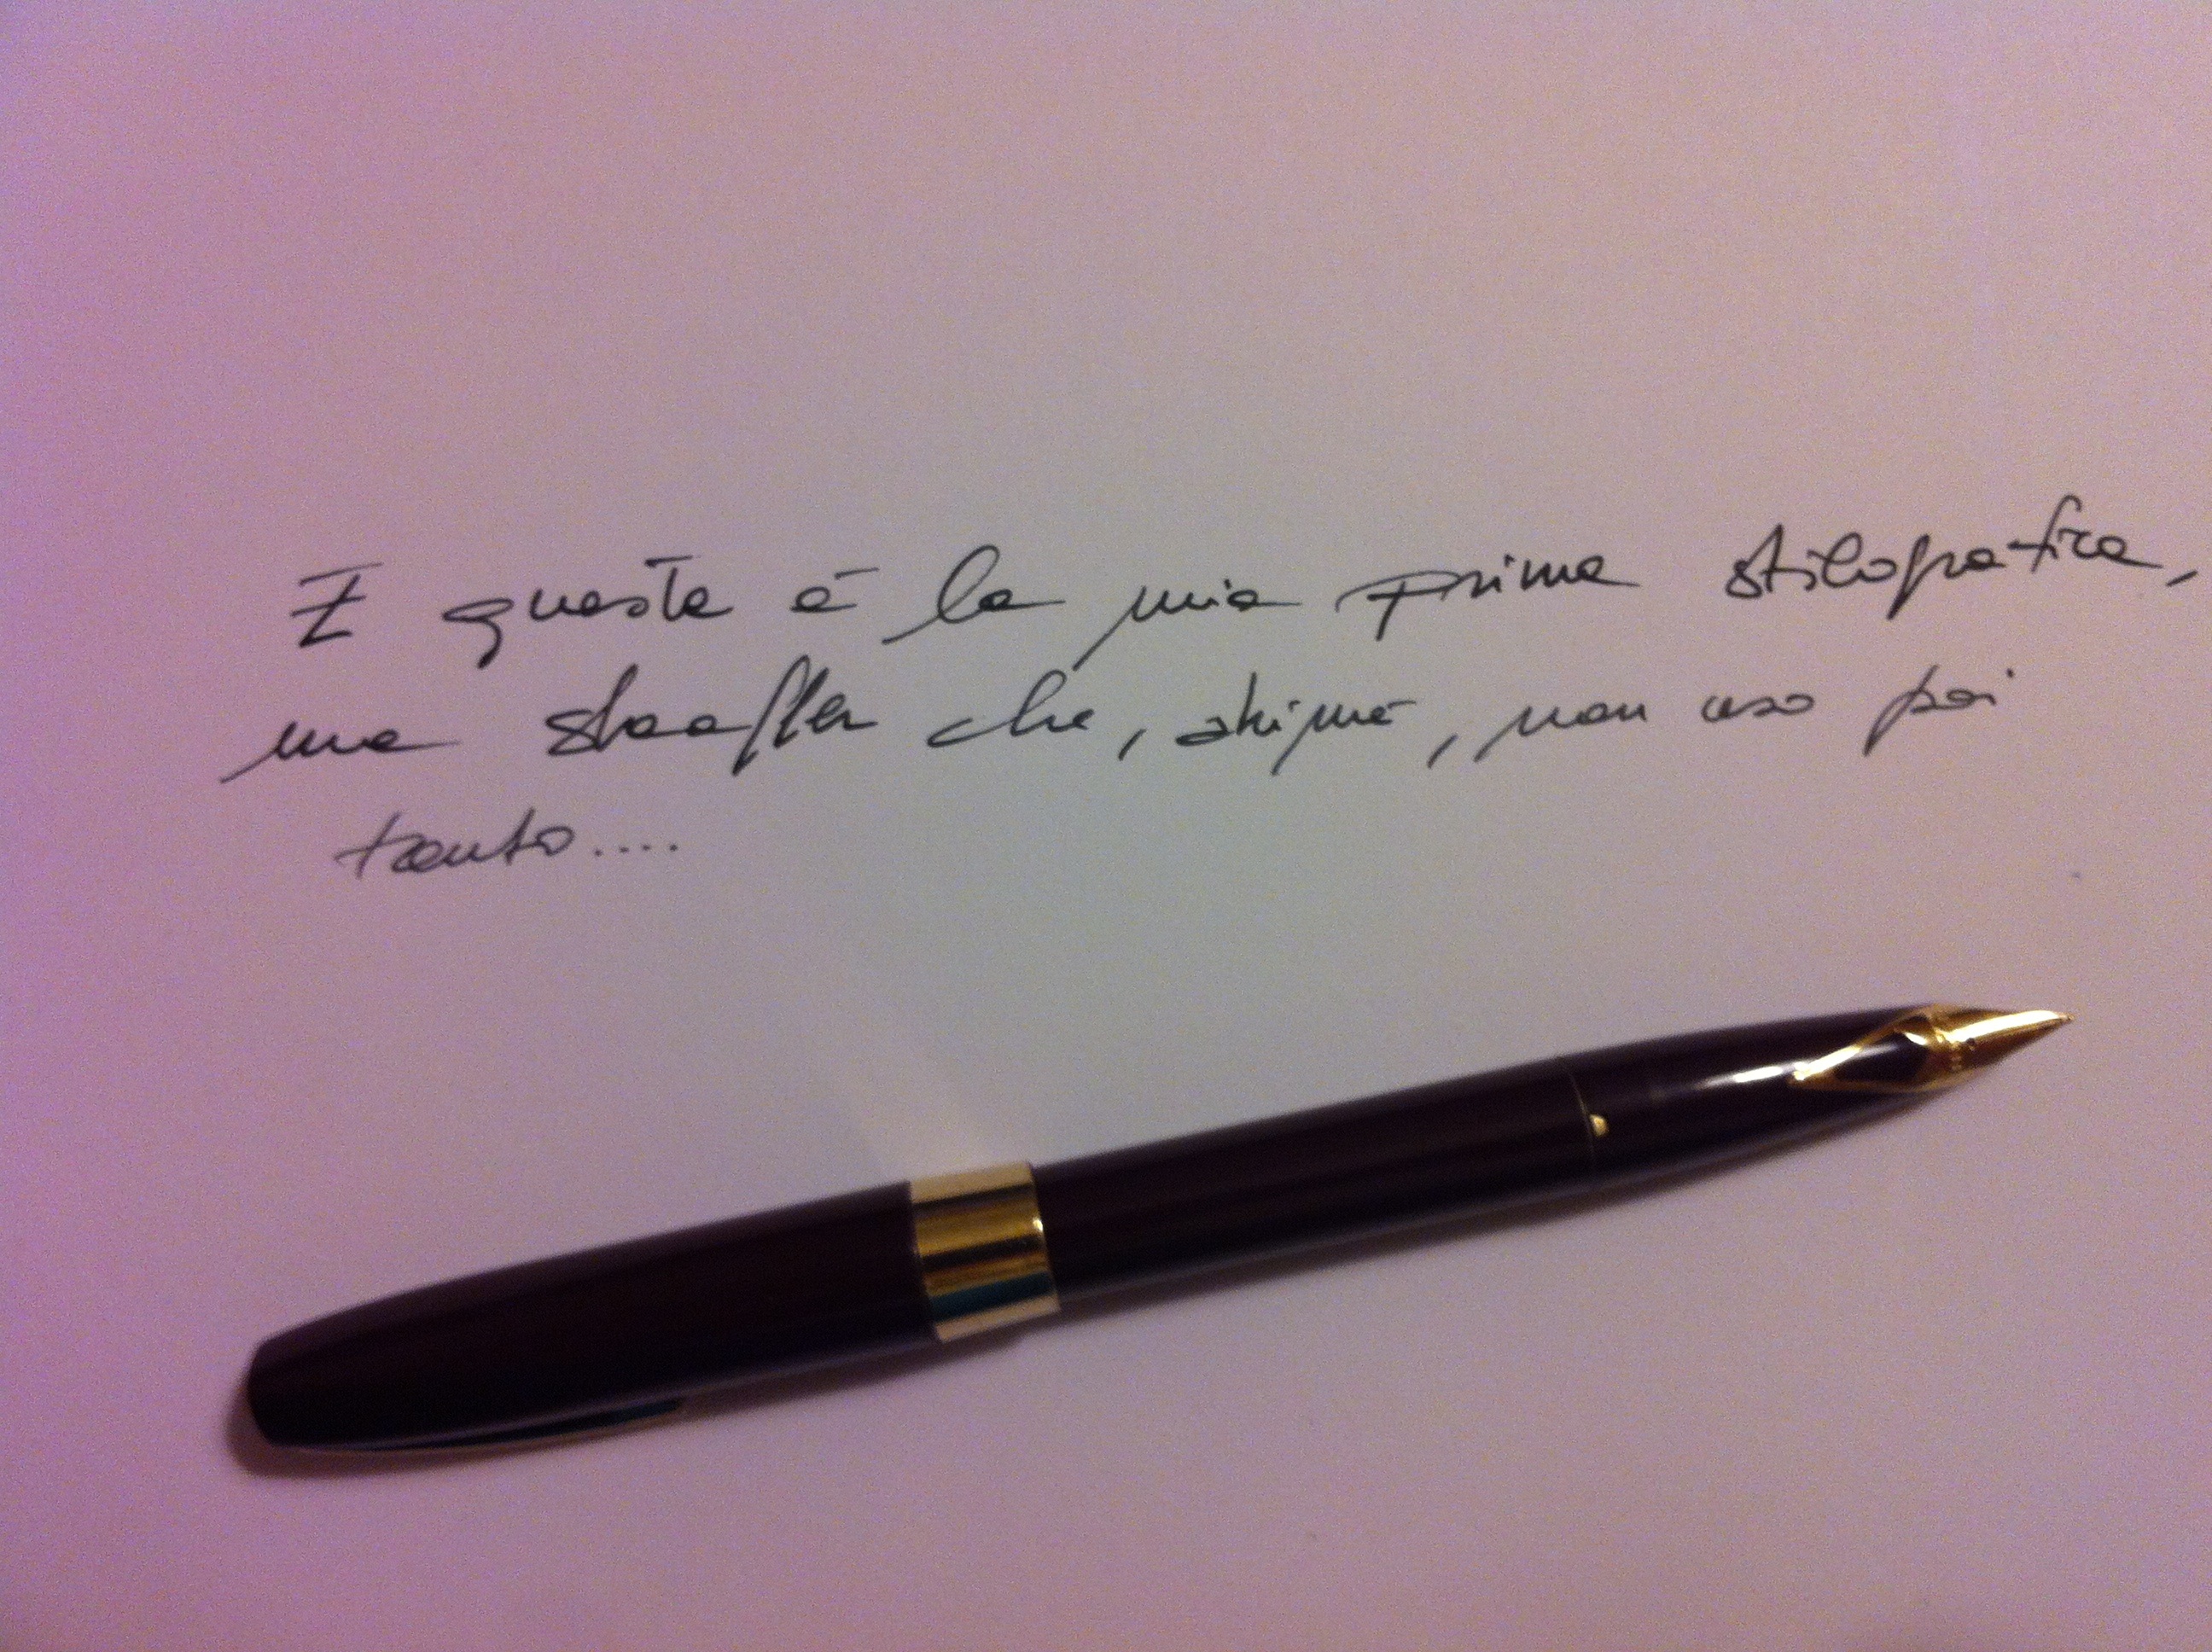 E questa è la mia prima stilografica,
una sheaffer che, ahimè, non uso poi
tanto....